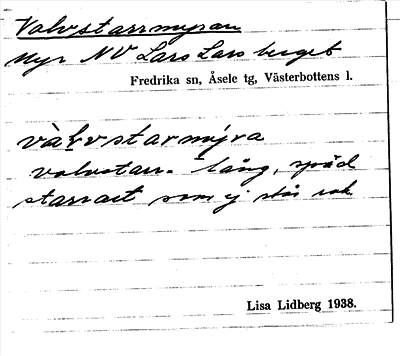 Valvstarrmyran
Myr NV Lars Lars berget
Fredrika sn, Åsele tg, Västerbottens l.
vàlvstarmýra
valvstarr = lång, späd
starrart som ej står rak
Lisa Lidberg 1938.